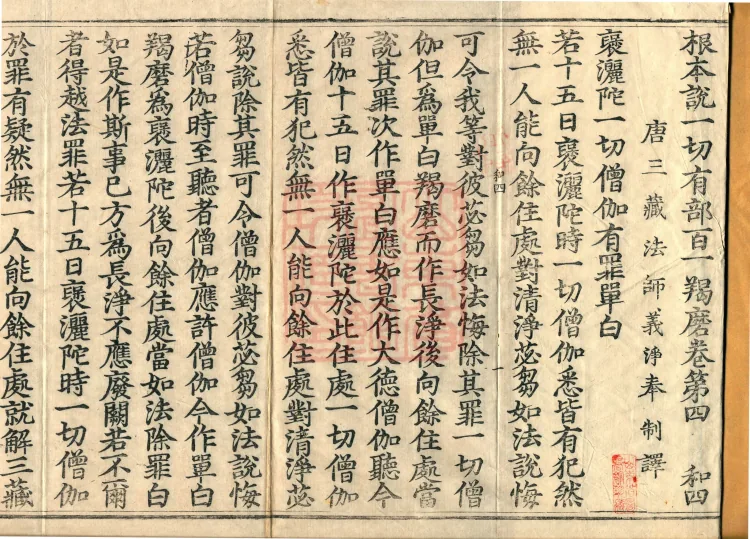 根本說一切有部百一羯磨卷第四　和四
唐三藏法師義淨奉制譯
褒灑陀一切僧伽有罪單白
若十五日褒灑陀時一切僧伽悉皆有犯然
無一人能向餘住處對清淨苾芻如法說悔
和四
一
可令我等對彼苾芻如法悔除其罪一切僧
伽但為單白羯磨而作長淨後向餘住處當
說其罪次作單白應如是作大德僧伽聽今
僧伽十五日作褒灑陀於此住處一切僧伽
悉皆有犯然無一人能向餘住處對清淨苾
芻說除其罪可令僧伽對彼苾芻如法說悔
若僧伽時至聽者僧伽應許僧伽今作單白
羯磨為褒灑陀後向餘住處當如法除罪白
如是作斯事已方為長淨不應廢闕若不爾
者得越法罪若十五日褒灑陀時一切僧伽
於罪有疑然無一人能向餘住處就解三藏